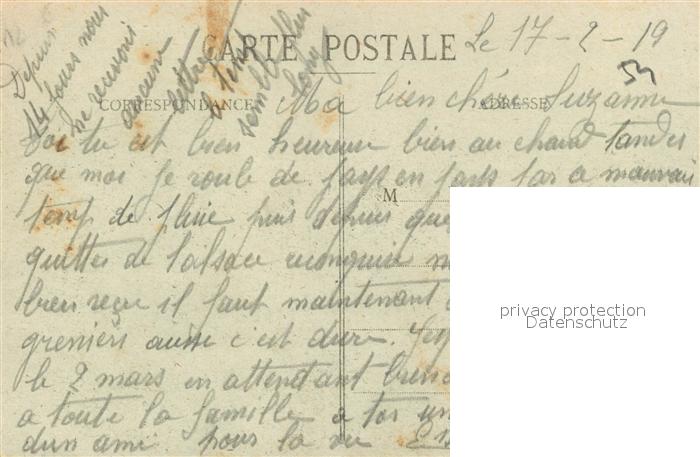 CARTE POSTALE
Le 17-2-19
54
CORRESPONDANCE
ADRESSE
M
Depuis
14 jours nous
ne recevoir
aucune
lettre
le temps
semble plus
long
Ma bien chère Suzanne
Toi tu est bien heureuse bien au chaud tandis
que moi je roule de pays en pays par ce mauvais
temp de pluie puis depuis que
quittes de l'alsace reconquise
bien reçu il faut maintenant
greniers aussi c'est dure.
le 2 mars en attendant
a toute la famille a toi un
dun ami pour la vie
privacy protection
Datenschutz